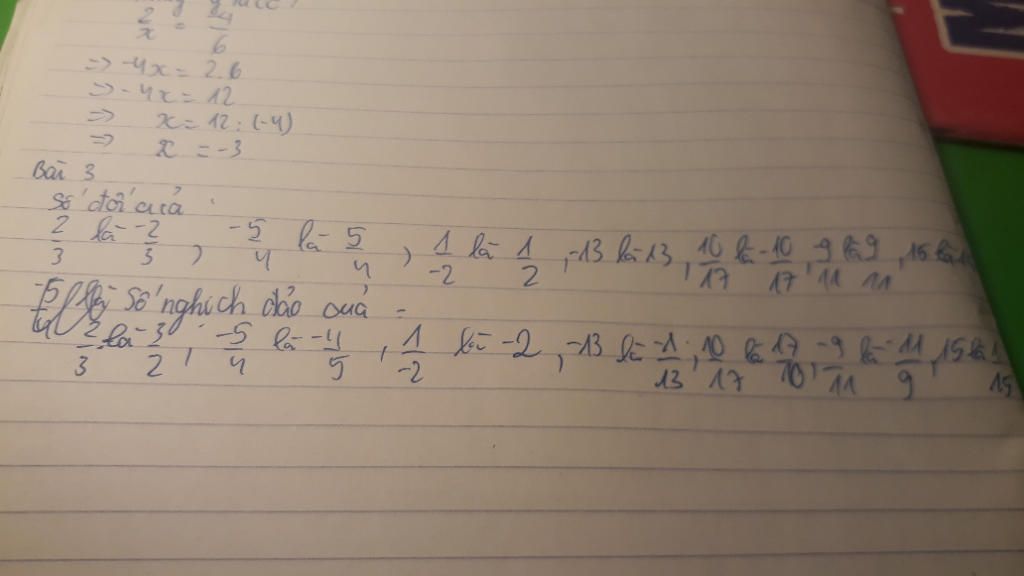 2/x = -4/6
=> -4x = 2.6
=> -4x = 12
=> x = 12 : (-4)
=> x = -3
Bài 3
Số đối của
2/3 là -2/3 , -5/4 là 5/4 , 1/-2 là 1/2 , -13 là 13 , 10/17 là -10/17 , -9/11 là 9/11 , 15 là
Số nghịch đảo của
2/3 là 3/2 ; -5/4 là -4/5 , 1/-2 là -2 , -13 là -1/13 , 10/17 là 17/10 , -9/11 là -11/9 , 15 là 1/15